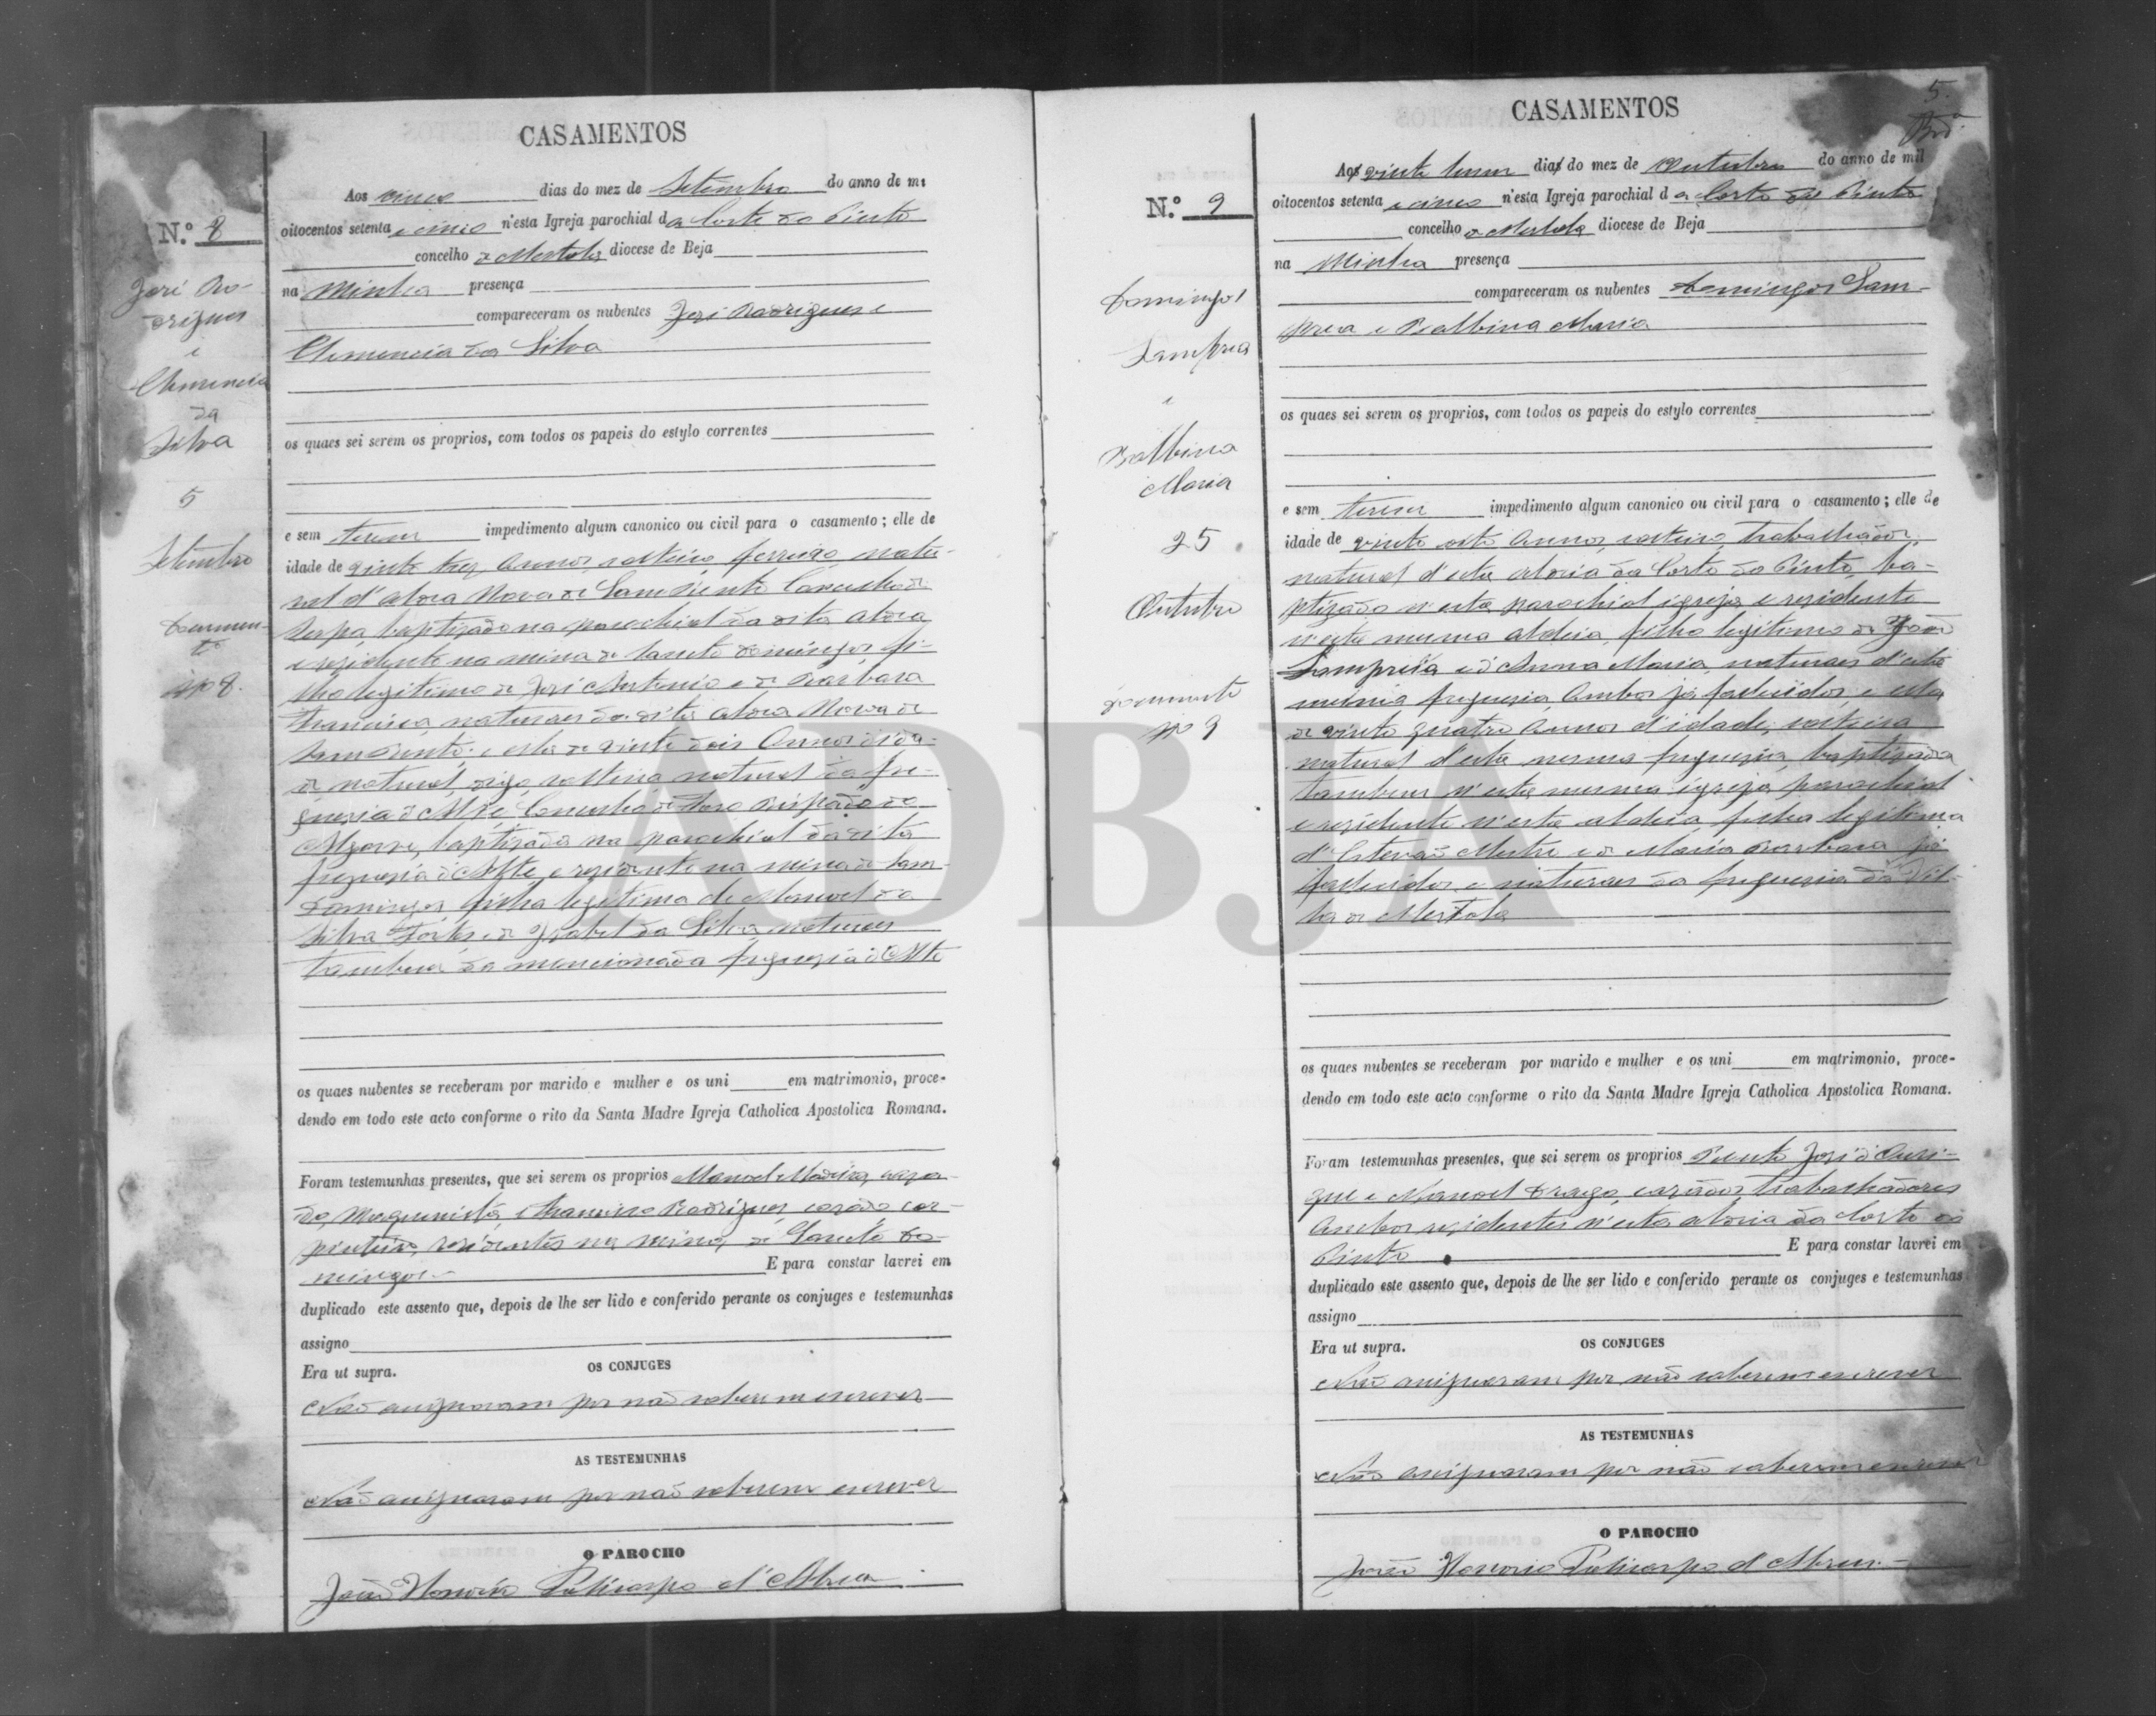 CASAMENTOS
N.º 8
José Ro-
drigues
e
Clemencia
da
Silva
5
Setembro
Documen-
to
nº 8.
Aos cinco dias do mez de Setembro do anno de mi
oitocentos setenta e cinco n'esta Igreja parochial da Corte do Pinto
concelho de Mertola diocese de Beja
na minha presença
compareceram os nubentes José Rodrigues e
Clemencia da Silva
os quaes sei serem os proprios, com todos os papeis do estylo correntes
e sem terem impedimento algum canonico ou civil para o casamento; elle de
idade de vinte trez annos, solteiro, ferreiro, natu-
ral d'aldea Nova de Sam Bento Concelho de
Serpa, baptizado na parochial da dita aldea
e rezidente na mina de Sancto Domingos, fi-
lho legitimo de José Antonio e de Barbara
Francisca, naturaes da dita aldea Nova de
Sam Bento: e ella de vinte dois annos d'ida-
de natural, digo, solteira natural da fre-
guezia d'Alte, Concelho de Bispado do
Algarve, baptizada na parochial da dita
freguezia d'Alte, e rezidente na mina de Sam
Domingos, filha legitima de Manoel da
Silva e de Izabel da Silva, naturaes
tambem da mencionada freguezia d'Alte
os quaes nubentes se receberam por marido e mulher e os uni em matrimonio, proce-
dendo em todo este acto conforme o rito da Santa Madre Igreja Catholica Apostolica Romana.
Foram testemunhas presentes, que sei serem os proprios Manoel Madeira, caza-
do, Maquinista, e Francisco Rodrigues, cazado car-
pinteiro, rezidentes na mina de Sancto Do-
mingos E para constar lavrei em
duplicado este assento que, depois de lhe ser lido e conferido perante os conjuges e testemunhas
assigno
Era ut supra. OS CONJUGES
Não assignaram por não saberem escrever
AS TESTEMUNHAS
Não assignaram por não saberem escrever
O PAROCHO
João Honorio Policarpo d'Abreu
5.
CASAMENTOS
N.º 9
Domingos
Samprea
e
Balbina
Maria
25
Outubro
documento
nº 9
Aos vinte cinco dias do mez de Outubro do anno de mil
oitocentos setenta e cinco n'esta Igreja parochial da Corte do Pinto
concelho de Mertola diocese de Beja
na minha presença
compareceram os nubentes Domingos Sam-
prea e Balbina Maria
os quaes sei serem os proprios, com todos os papeis do estylo correntes
e sem terem impedimento algum canonico ou civil para o casamento; elle de
idade de vinte oito annos, solteiro, trabalhador,
natural d'esta aldeia da Corte do Pinto, ba-
ptizado n'esta parochial igreja e rezidente
n'esta mesma aldeia, filho legitimo de João
Sampreia e d'Anna Maria, naturaes d'esta
mesma freguezia, ambos já fallecidos, e ella
de vinte quatro annos d'idade, solteira
natural d'esta mesma freguezia, baptizada
tambem n'esta mesma igreja parochial
e rezidente n'esta aldeia, filha legitima
d'Estevão Mestre e de Maria Barbara já
fallecidos, e naturaes da freguezia da Vil-
la de Mertola
os quaes nubentes se receberam por marido e mulher e os uni em matrimonio, proce-
dendo em todo este acto conforme o rito da Santa Madre Igreja Catholica Apostolica Romana.
Foram testemunhas presentes, que sei serem os proprios Bento José d'Ouri-
que e Manoel Drago, cazados, trabalhadores
ambos rezidentes n'esta aldeia da Corte do
Pinto E para constar lavrei em
duplicado este assento que, depois de lhe ser lido e conferido perante os conjuges e testemunhas
assigno
Era ut supra. OS CONJUGES
Não assignaram por não saberem escrever
AS TESTEMUNHAS
Não assignaram por não saberem escrever
O PAROCHO
João Honorio Policarpo d'Abreu
ADBJA